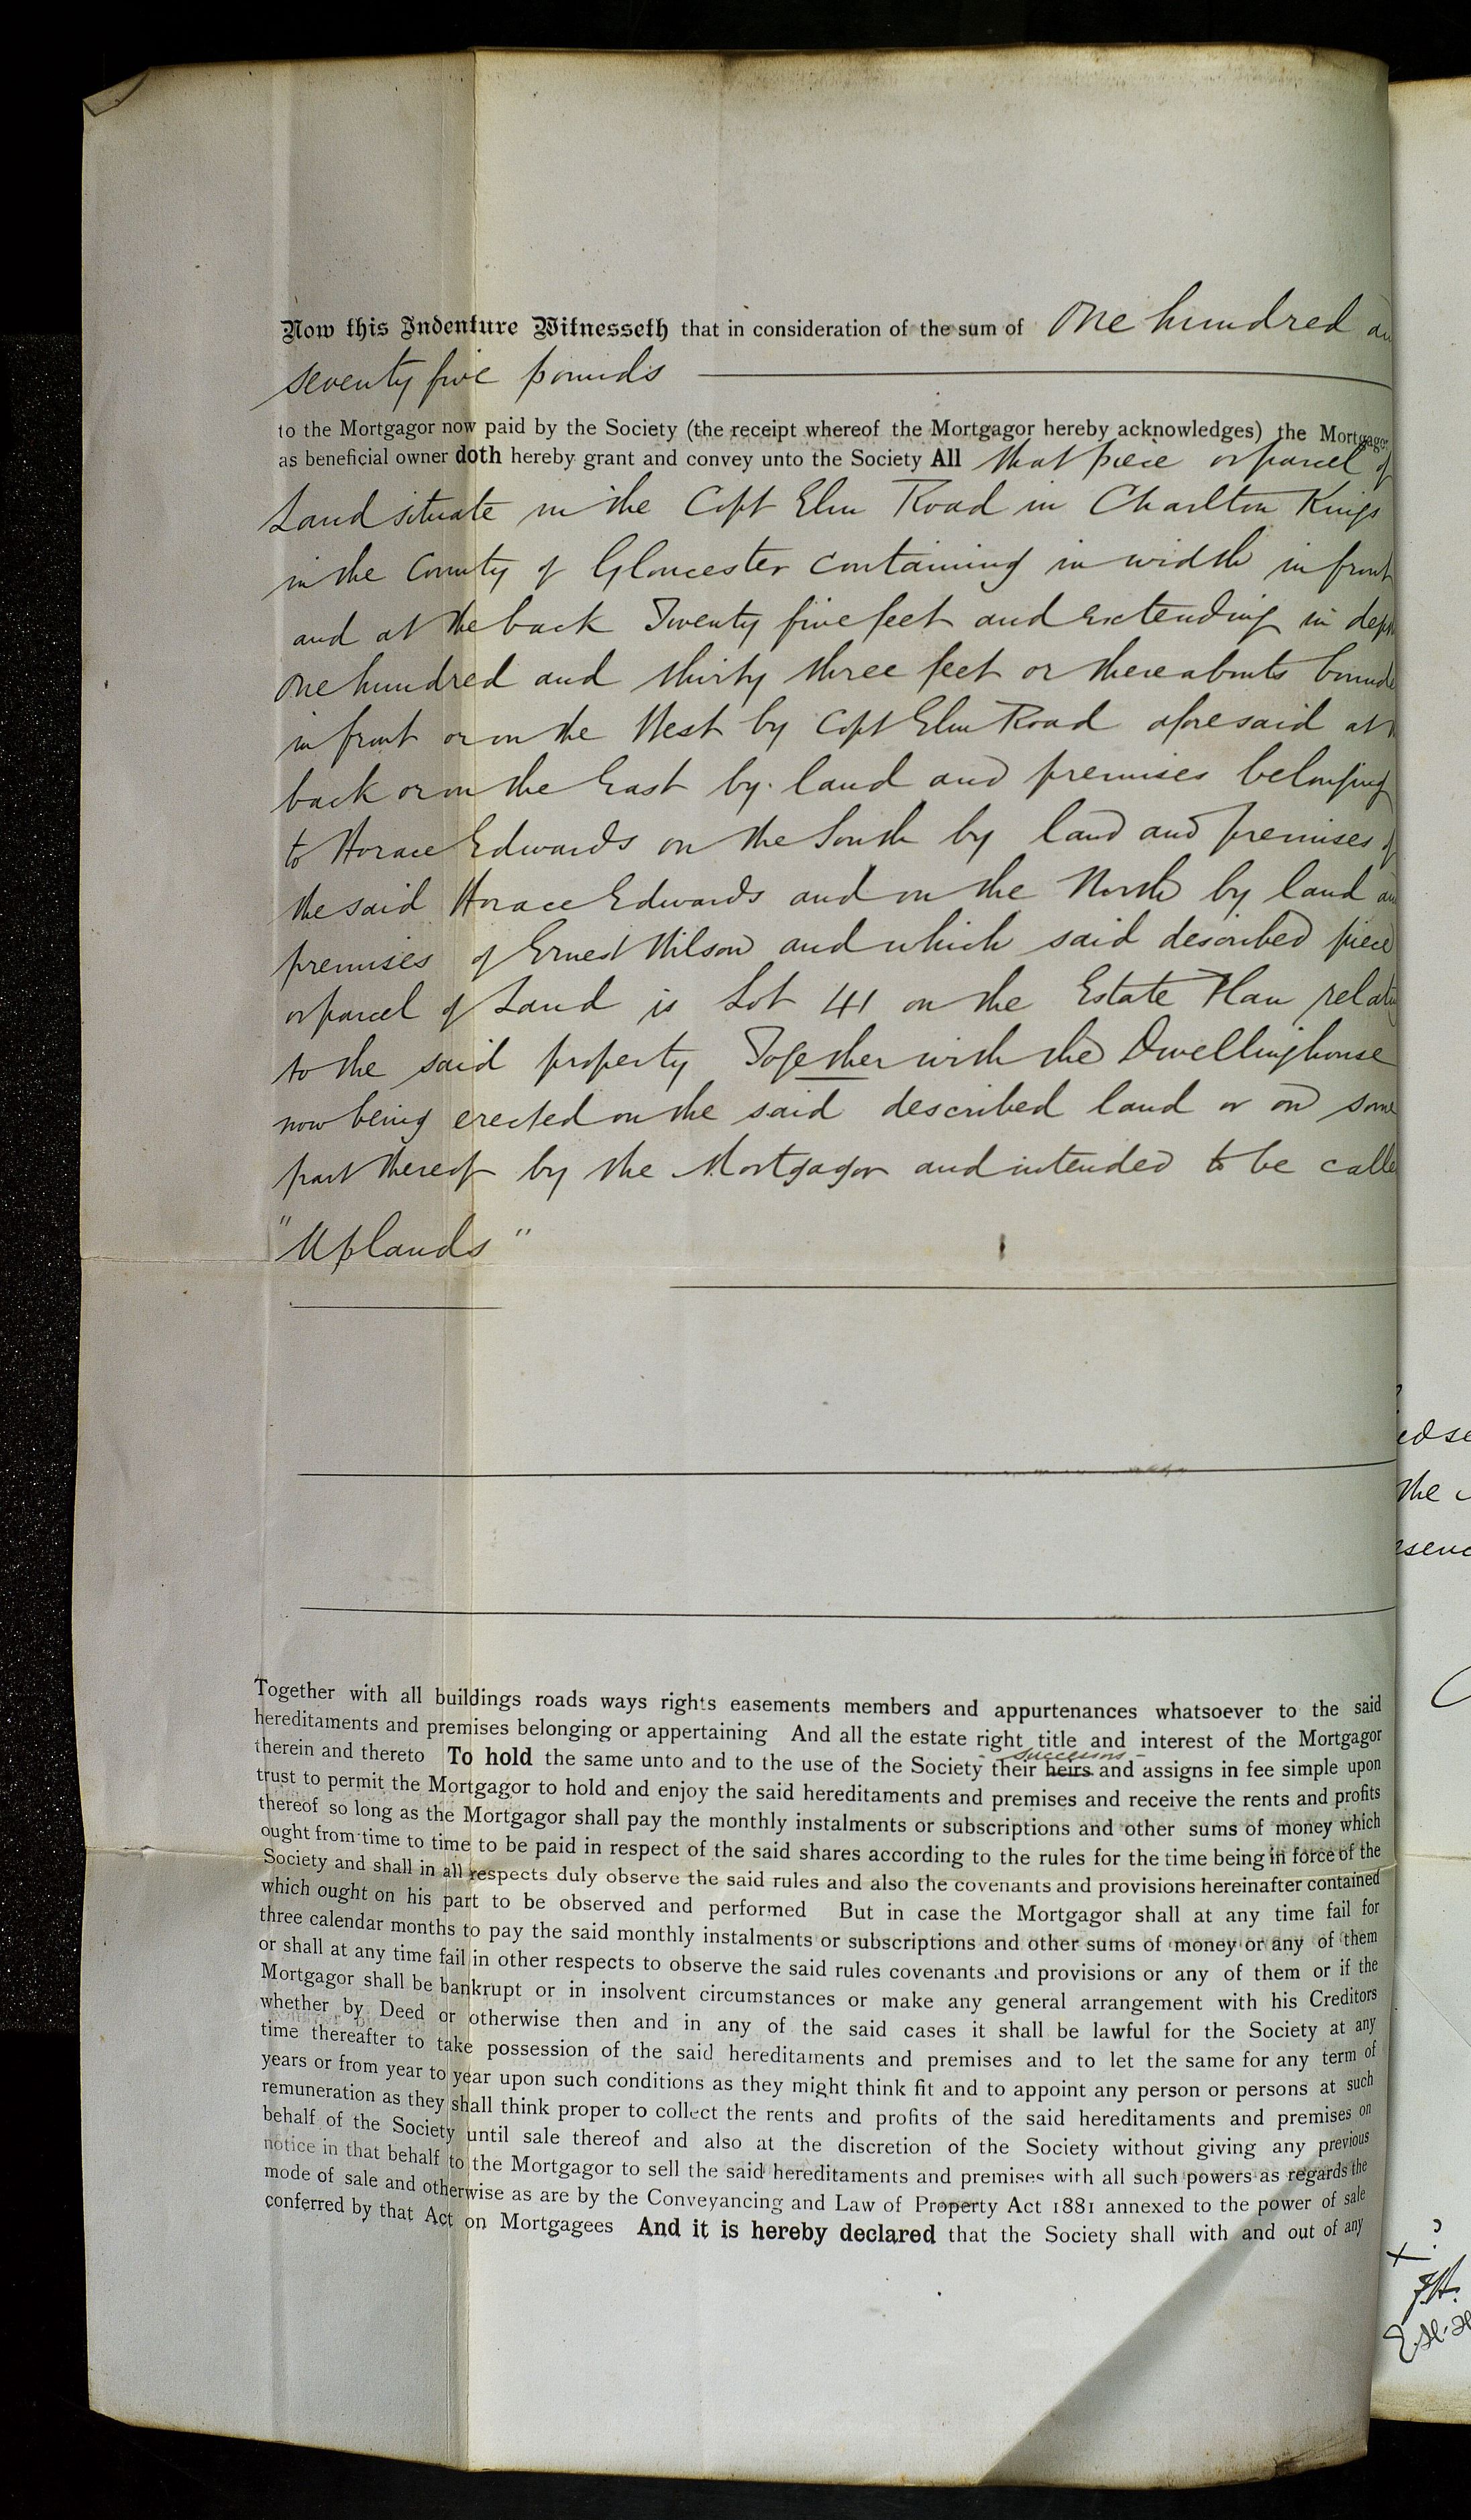 Now this Indenture Witnesseth that in consideration of the sum of One hundred an
seventy five pounds
to the Mortgagor now paid by the Society (the receipt whereof the Mortgagor hereby acknowledges) the Mortgagor
as beneficial owner doth hereby grant and convey unto the Society All that piece or parcel of
Land situate in the Copt Elm Road in Charlton Kings
in the County of Gloucester containing in width in front
and at the back Twenty five feet and extending in dept
One hundred and thirty three feet or thereabouts bounde
in front or on the West by Copt Elm Road aforesaid at
back or on the East by land and premises belonging
to Horace Edwards on the South by land and premises of
the said Horace Edwards and on the North by land an
premises of Ernest Wilson and which said described piece
or parcel of Land is Lot 41 on the Estate Plan relati
to the said property Together with the Dwellinghouse
now being erected on the said described land or on some
part thereof by the Mortgagor and intended to be calle
"Uplands"
Together with all buildings roads ways rights easements members and appurtenances whatsoever to the said
hereditaments and premises belonging or appertaining And all the estate right title and interest of the Mortgagor
successors
therein and thereto To hold the same unto and to the use of the Society their heirs and assigns in fee simple upon
trust to permit the Mortgagor to hold and enjoy the said hereditaments and premises and receive the rents and profits
thereof so long as the Mortgagor shall pay the monthly instalments or subscriptions and other sums of money which
ought from time to time to be paid in respect of the said shares according to the rules for the time being in force of the
Society and shall in all respects duly observe the said rules and also the covenants and provisions hereinafter contained
which ought on his part to be observed and performed But in case the Mortgagor shall at any time fail for
three calendar months to pay the said monthly instalments or subscriptions and other sums of money or any of them
or shall at any time fail in other respects to observe the said rules covenants and provisions or any of them or if the
Mortgagor shall be bankrupt or in insolvent circumstances or make any general arrangement with his Creditors
whether by Deed or otherwise then and in any of the said cases it shall be lawful for the Society at any
time thereafter to take possession of the said hereditaments and premises and to let the same for any term of
years or from year to year upon such conditions as they might think fit and to appoint any person or persons at such
remuneration as they shall think proper to collect the rents and profits of the said hereditaments and premises on
behalf of the Society until sale thereof and also at the discretion of the Society without giving any previous
notice in that behalf to the Mortgagor to sell the said hereditaments and premises with all such powers as regards the
mode of sale and otherwise as are by the Conveyancing and Law of Property Act 1881 annexed to the power of sale
conferred by that Act on Mortgagees And it is hereby declared that the Society shall with and out of any